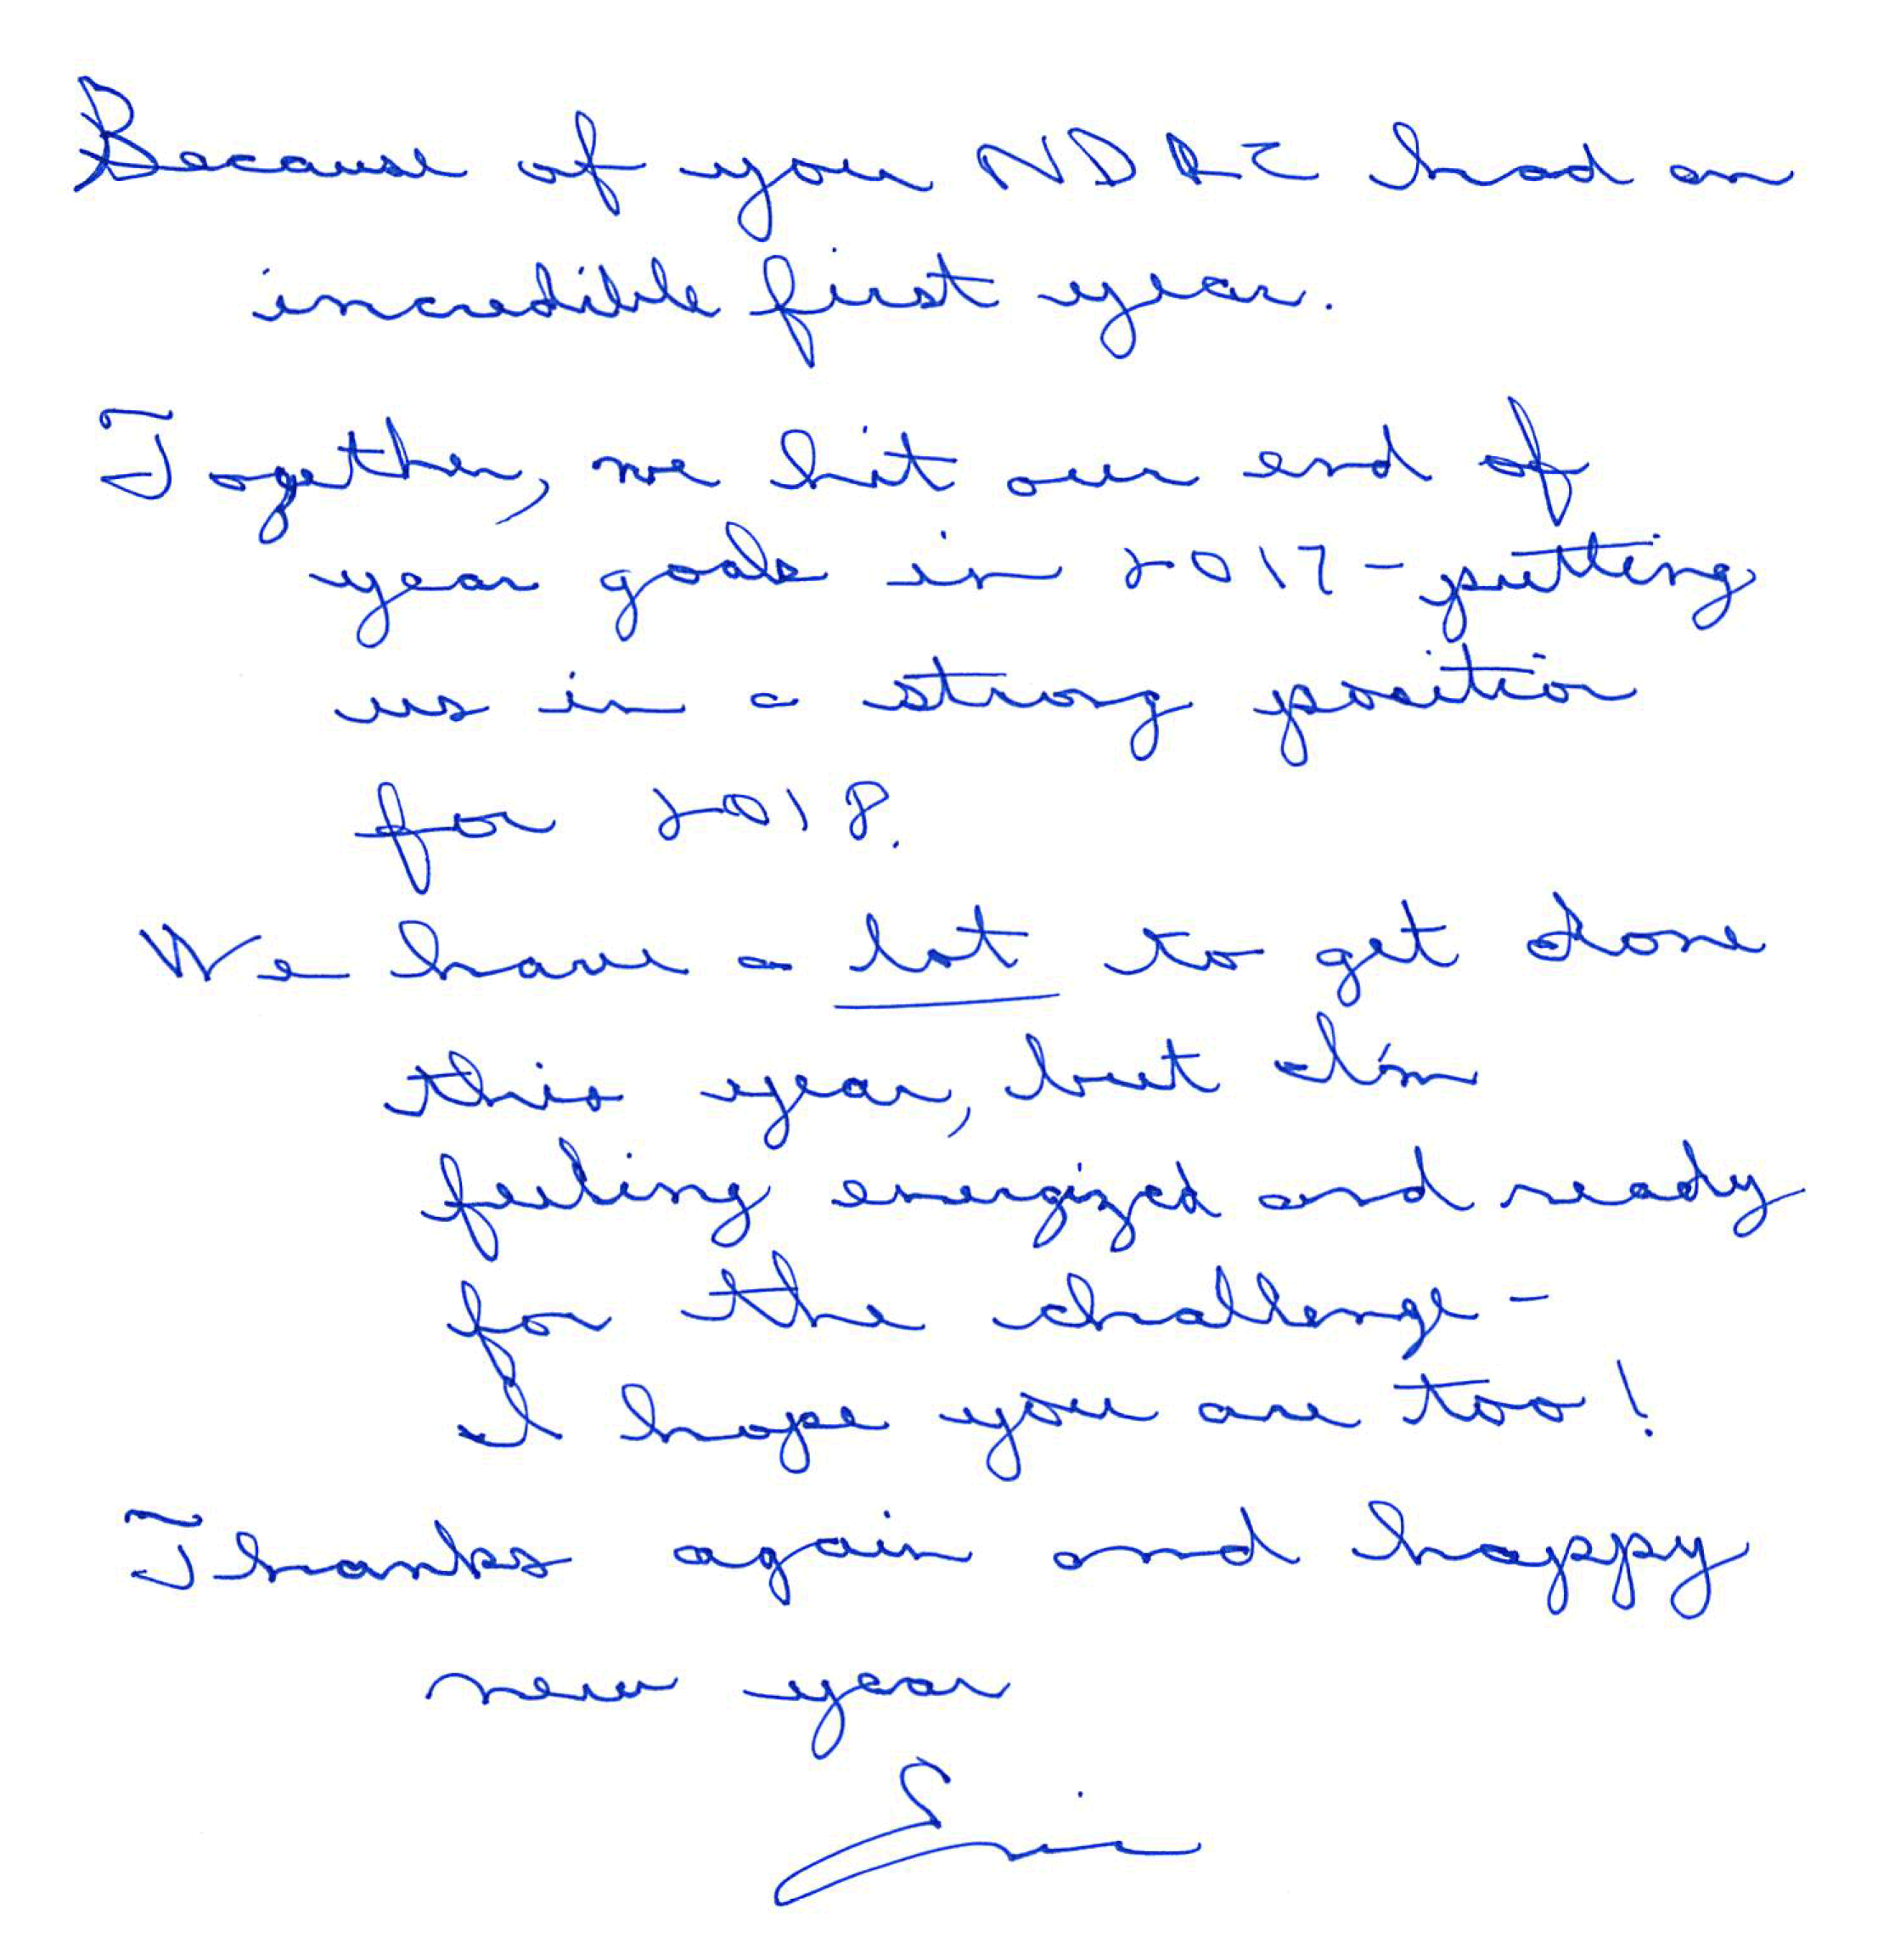 Because of you NDRC had an
incredible first year.
Together, we hit our end of
year goals in 2017 - putting
us in a strong position
for 2018.
We have a lot to get done
this year, but I'm
feeling energized and ready
for the challenge -
I hope you are too!
Thanks again and happy
new year
Eric